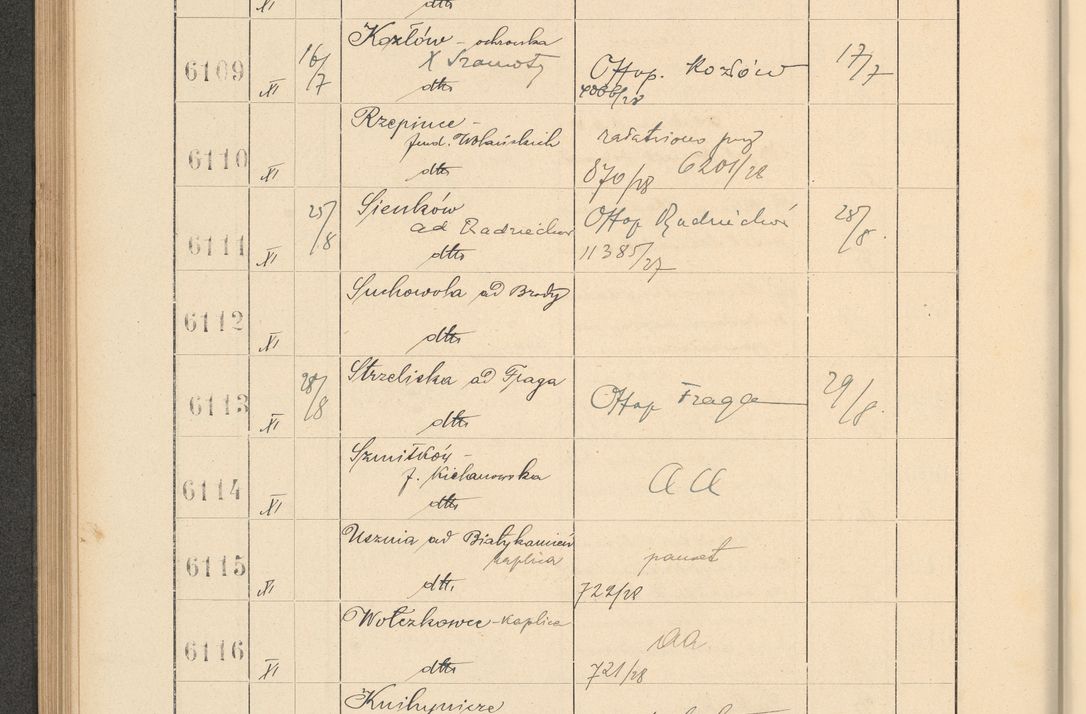 XI dtto
6109 XI 16/7 Kozłów - ochronka
X Szamoty
dtto
Offop. Kozłów 17/7
4066/28
6110 XI Rzepince -
fund. Wolańskich
dtto
załatwiono przy
870/28 6201/28
6111 XI 25/8 Sieńków
ad Radziechów
dtto
Offop Radziechów 28/8.
11385/27
6112 XI Suchowola ad Brody
dtto
6113 XI 28/8 Strzeliska ad Fraga
dtto
Offop Fraga 29/8.
6114 XI Szmitków -
f. Kiehanowska
dtto
aa
6115 XI Usznia ad Białykamień
kaplica
dtto
722/28
6116 XI Wołczkowce - kaplica
dtto
aa
721/28
Knihynicze